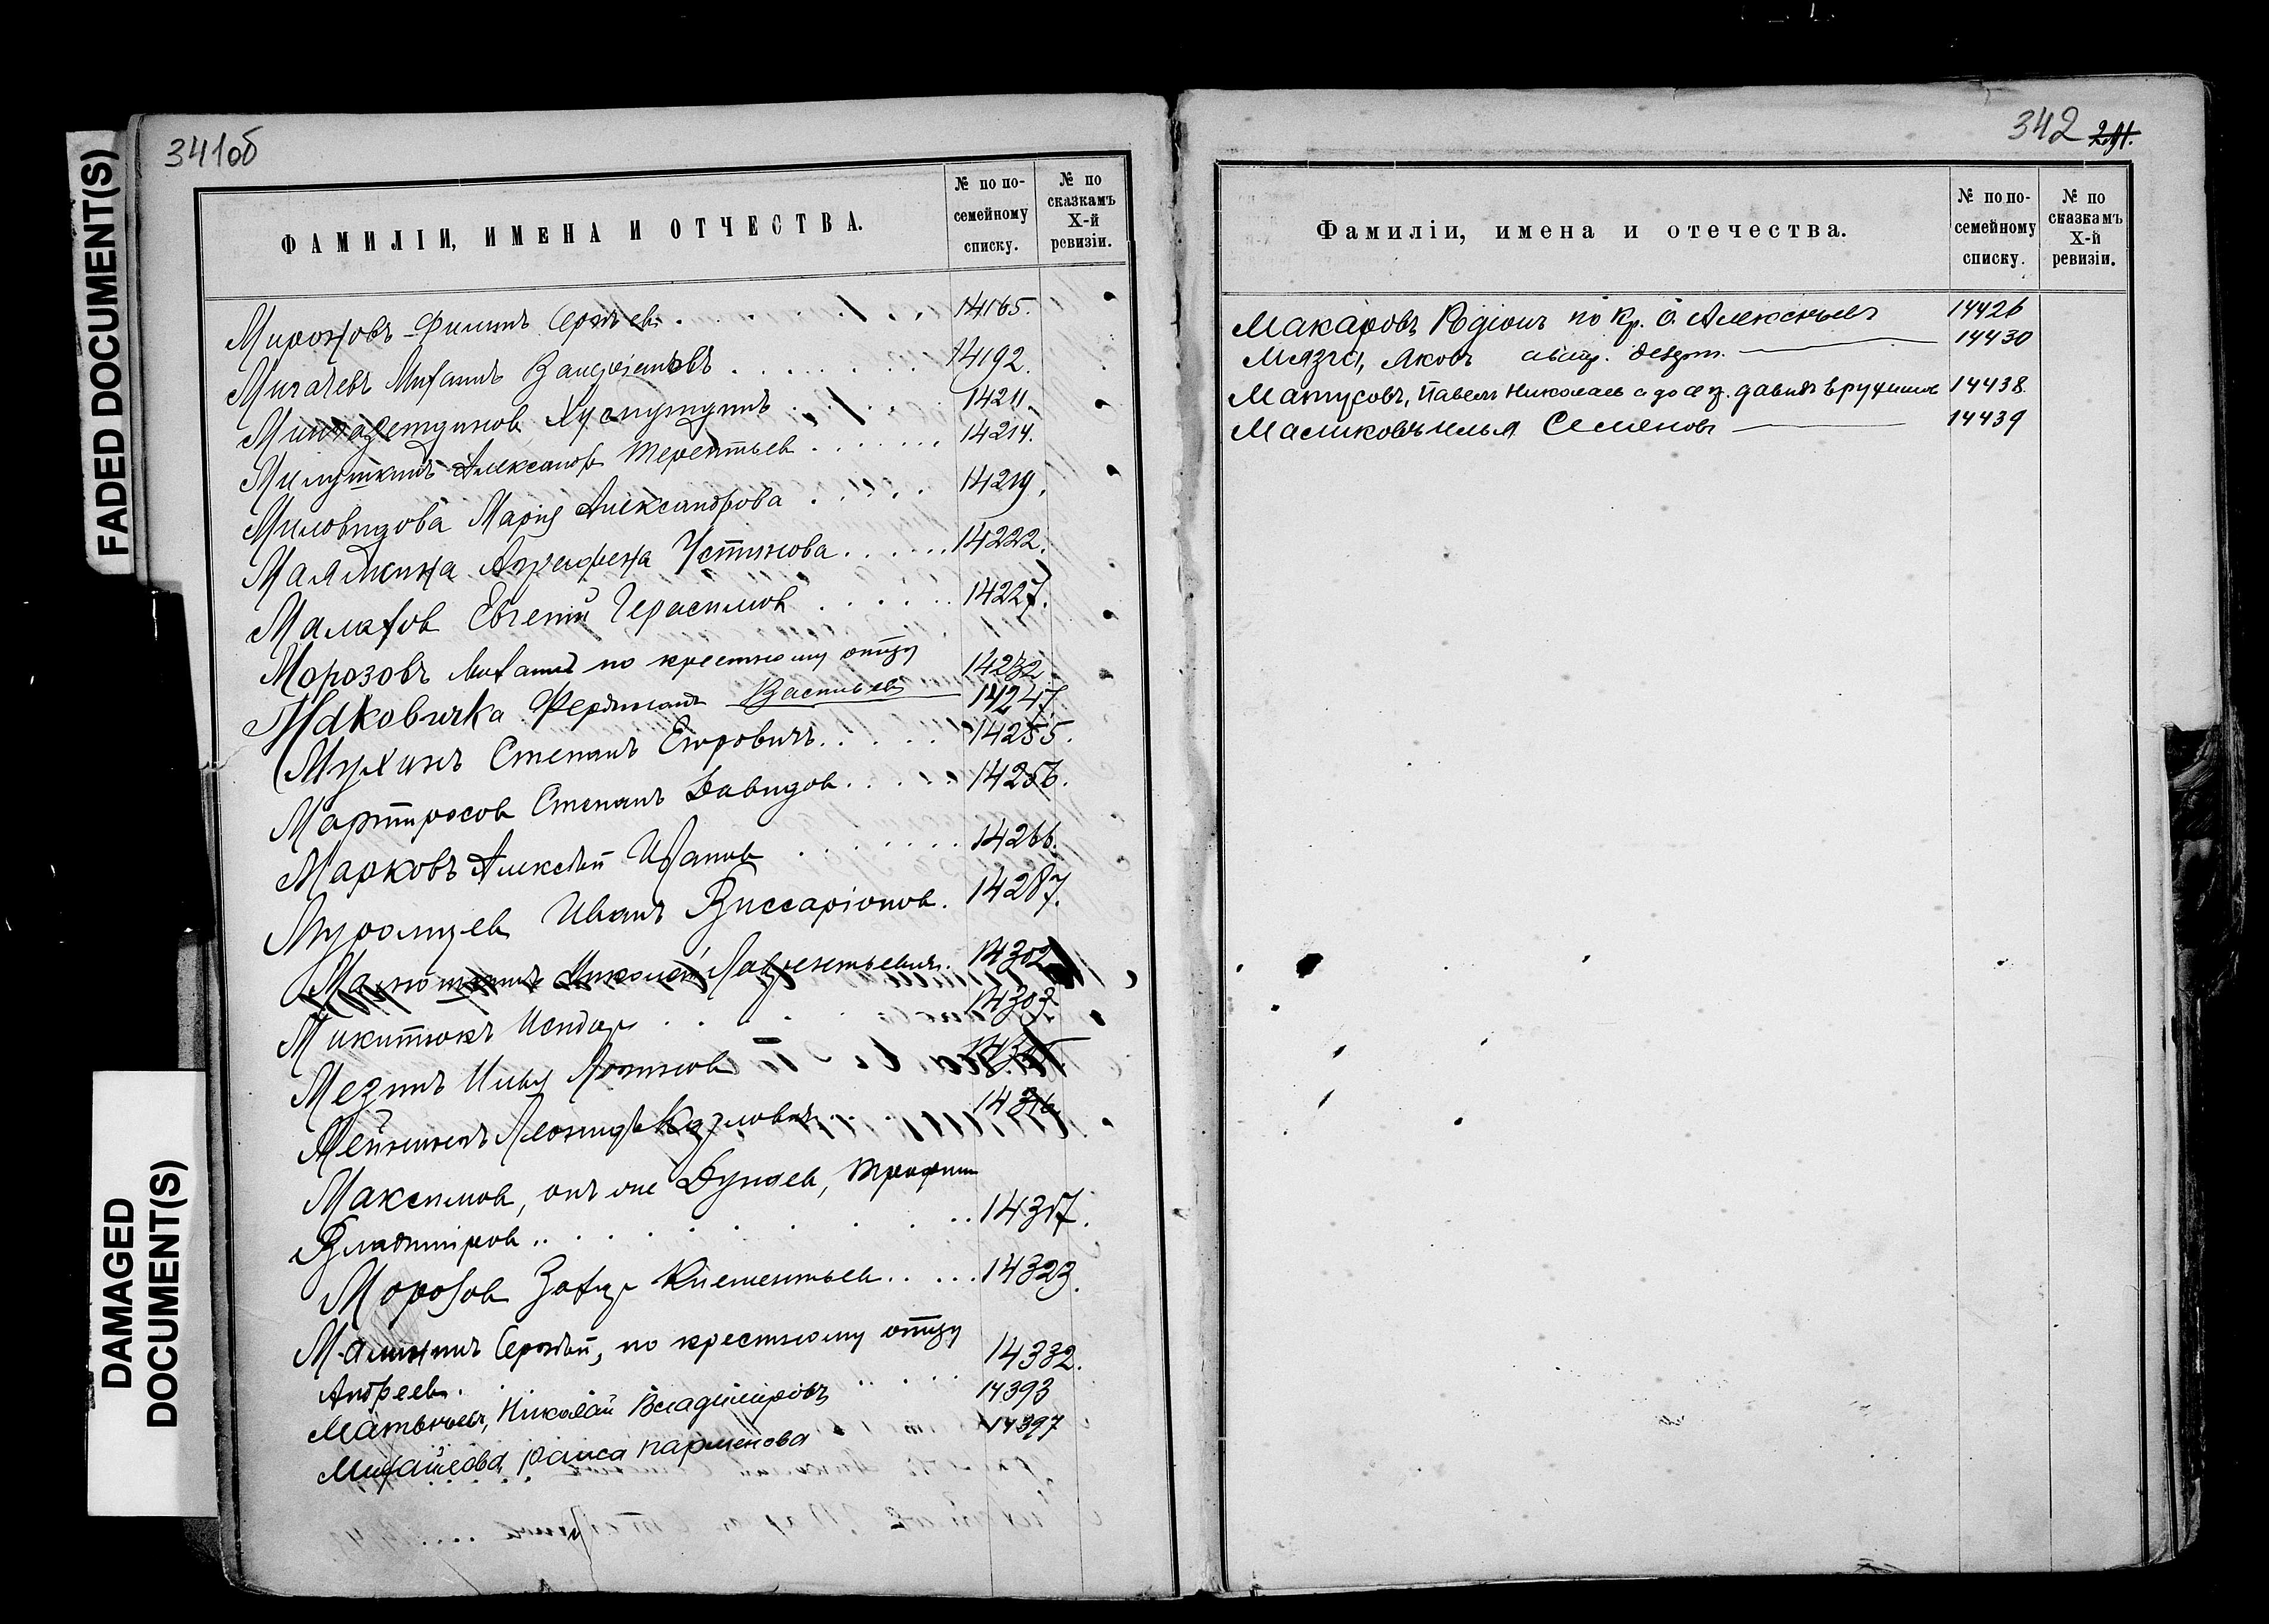 FADED DOCUMENT(S)
DAMAGED
DOCUMENT(S)
341об
ФАМИЛІИ, ИМЕНА И ОТЧЕСТВА.
№ по по-
семейному
списку.
№ по
сказкамъ
X-й
ревизіи.
Мироновъ Филипъ Сергѣев. 14165.
Михаилъ 14192.
14211.
Милушкинъ Александр Терентьев 14214.
Миловидова Марія Александрова 14219.
Малмкина Агрифена Устинова 14222.
Малахов Евгеній Герасимов 14227.
Морозовъ Михаилъ по крестному отцу
Васильев 14232
Маковичка Фердинанд 14247.
Мухинъ Степанъ Егоровичъ 14255.
Мартиросов Степанъ Давидов 14256.
Марковъ Алексѣй Иванов 14266.
Муромцев Иванъ Виссаріонов. 14287.
Николай Лаврентьевичъ. 14302
Микитюкъ Исидор 14303
Мезинъ Илья Логинов
Мейнинъ Леонидъ Карловичъ 14316
Максимов, онъ же Дундев, Трофим
Владиміров 14317.
Морозов Захар Климентьев 14323.
Малининъ Сергѣй, по крестному отцу
Андреев. 14332.
Матвѣевъ, Николай Владиміровъ 14393
Михайлова, Раиса Парменова 14397
342 291.
Фамиліи, имена и отечества.
№ по по-
семейному
списку.
№ по
сказкамъ
X-й
ревизіи.
Макаровъ Родіонъ по кр. о. Алексѣевъ 14426
Мязги, Яковъ 14430
Матусовъ, Павелъ Николаев 14438
Маликовъ Илья Семеновъ 14439